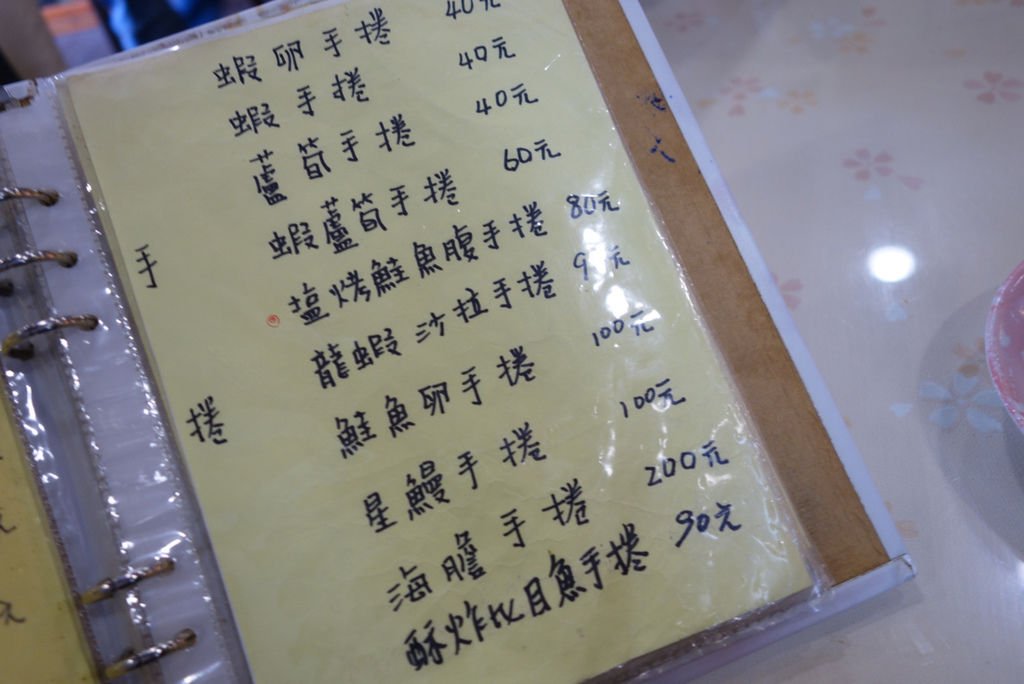 手捲
蝦卵手捲 40元
蝦手捲 40元
蘆筍手捲 40元
蝦蘆筍手捲 60元
塩烤鮭魚腹手捲 80元
龍蝦沙拉手捲
鮭魚卵手捲 100元
星鰻手捲 100元
海膽手捲 200元
酥炸比目魚手捲 90元